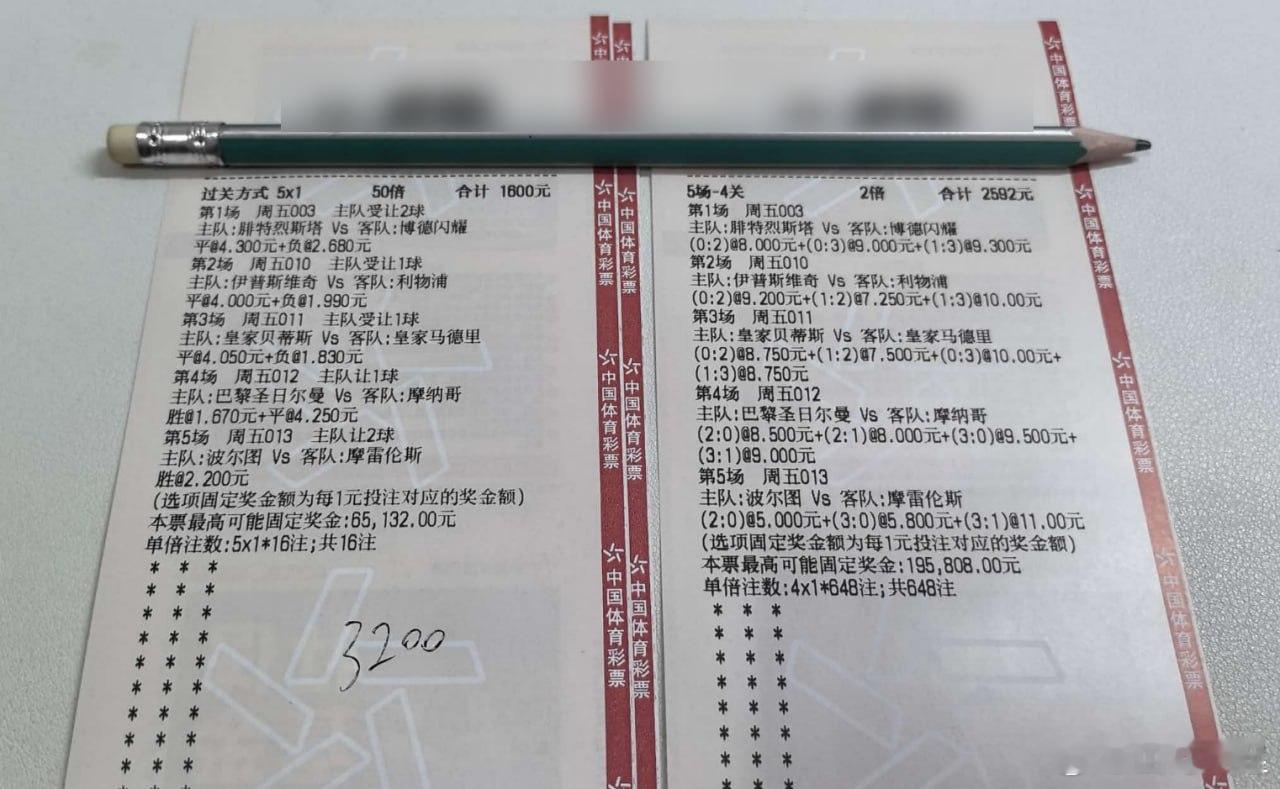 过关方式 5x1 50倍 合计 1600元
第1场 周五003 主队受让2球
主队:腓特烈斯塔 Vs 客队:博德闪耀
平@4.300元+负@2.680元
第2场 周五010 主队受让1球
主队:伊普斯维奇 Vs 客队:利物浦
平@4.000元+负@1.990元
第3场 周五011 主队受让1球
主队:皇家贝蒂斯 Vs 客队:皇家马德里
平@4.050元+负@1.830元
第4场 周五012 主队让1球
主队:巴黎圣日尔曼 Vs 客队:摩纳哥
胜@1.670元+平@4.250元
第5场 周五013 主队让2球
主队:波尔图 Vs 客队:摩雷伦斯
胜@2.200元
(选项固定奖金额为每1元投注对应的奖金额)
本票最高可能固定奖金:65,132.00元
单倍注数:5x1*16注;共16注
3200
5场-4关 2倍 合计 2592元
第1场 周五003
主队:腓特烈斯塔 Vs 客队:博德闪耀
(0:2)@8.000元+(0:3)@9.000元+(1:3)@9.300元
第2场 周五010
主队:伊普斯维奇 Vs 客队:利物浦
(0:2)@9.200元+(1:2)@7.250元+(1:3)@10.00元
第3场 周五011
主队:皇家贝蒂斯 Vs 客队:皇家马德里
(0:2)@8.750元+(1:2)@7.500元+(0:3)@10.00元+
(1:3)@8.750元
第4场 周五012
主队:巴黎圣日尔曼 Vs 客队:摩纳哥
(2:0)@8.500元+(2:1)@8.000元+(3:0)@9.500元+
(3:1)@9.000元
第5场 周五013
主队:波尔图 Vs 客队:摩雷伦斯
(2:0)@5.000元+(3:0)@5.800元+(3:1)@11.00元
(选项固定奖金额为每1元投注对应的奖金额)
本票最高可能固定奖金:195,808.00元
单倍注数:4x1*648注;共648注
中国体育彩票
中国体育彩票
中国体育彩票
中国体育彩票
中国体育彩票
中国体育彩票
中国体育彩票
中国体育彩票
中国体育彩票
中国体育彩票